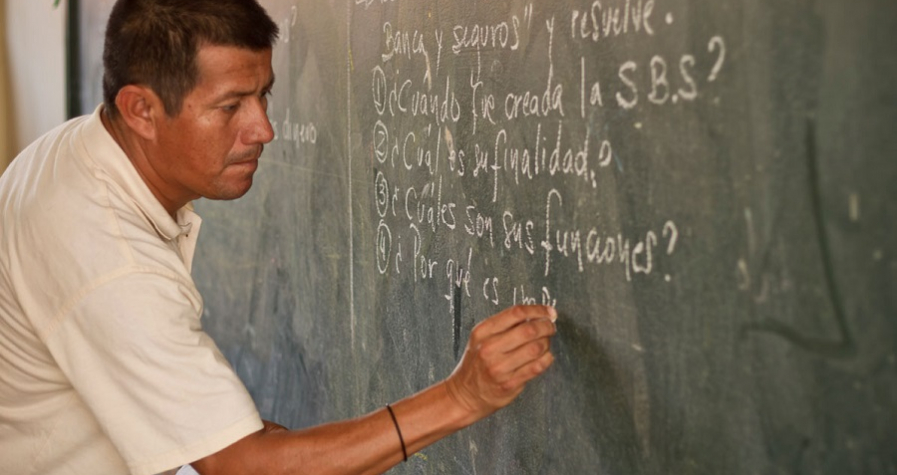 Banca y seguros" y resuelve.
① ¿Cuándo fue creada la S.B.S?
② ¿Cuál es su finalidad?
③ ¿Cuáles son sus funciones?
④ ¿Por qué es imp
dinero